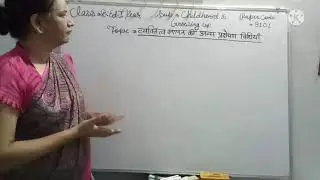 Class B.Ed I Year Sub = Childhood & Growing up Paper Code = 8101
Topic = व्यक्तित्व मापन की अन्य प्रक्षेपण विधियाँ